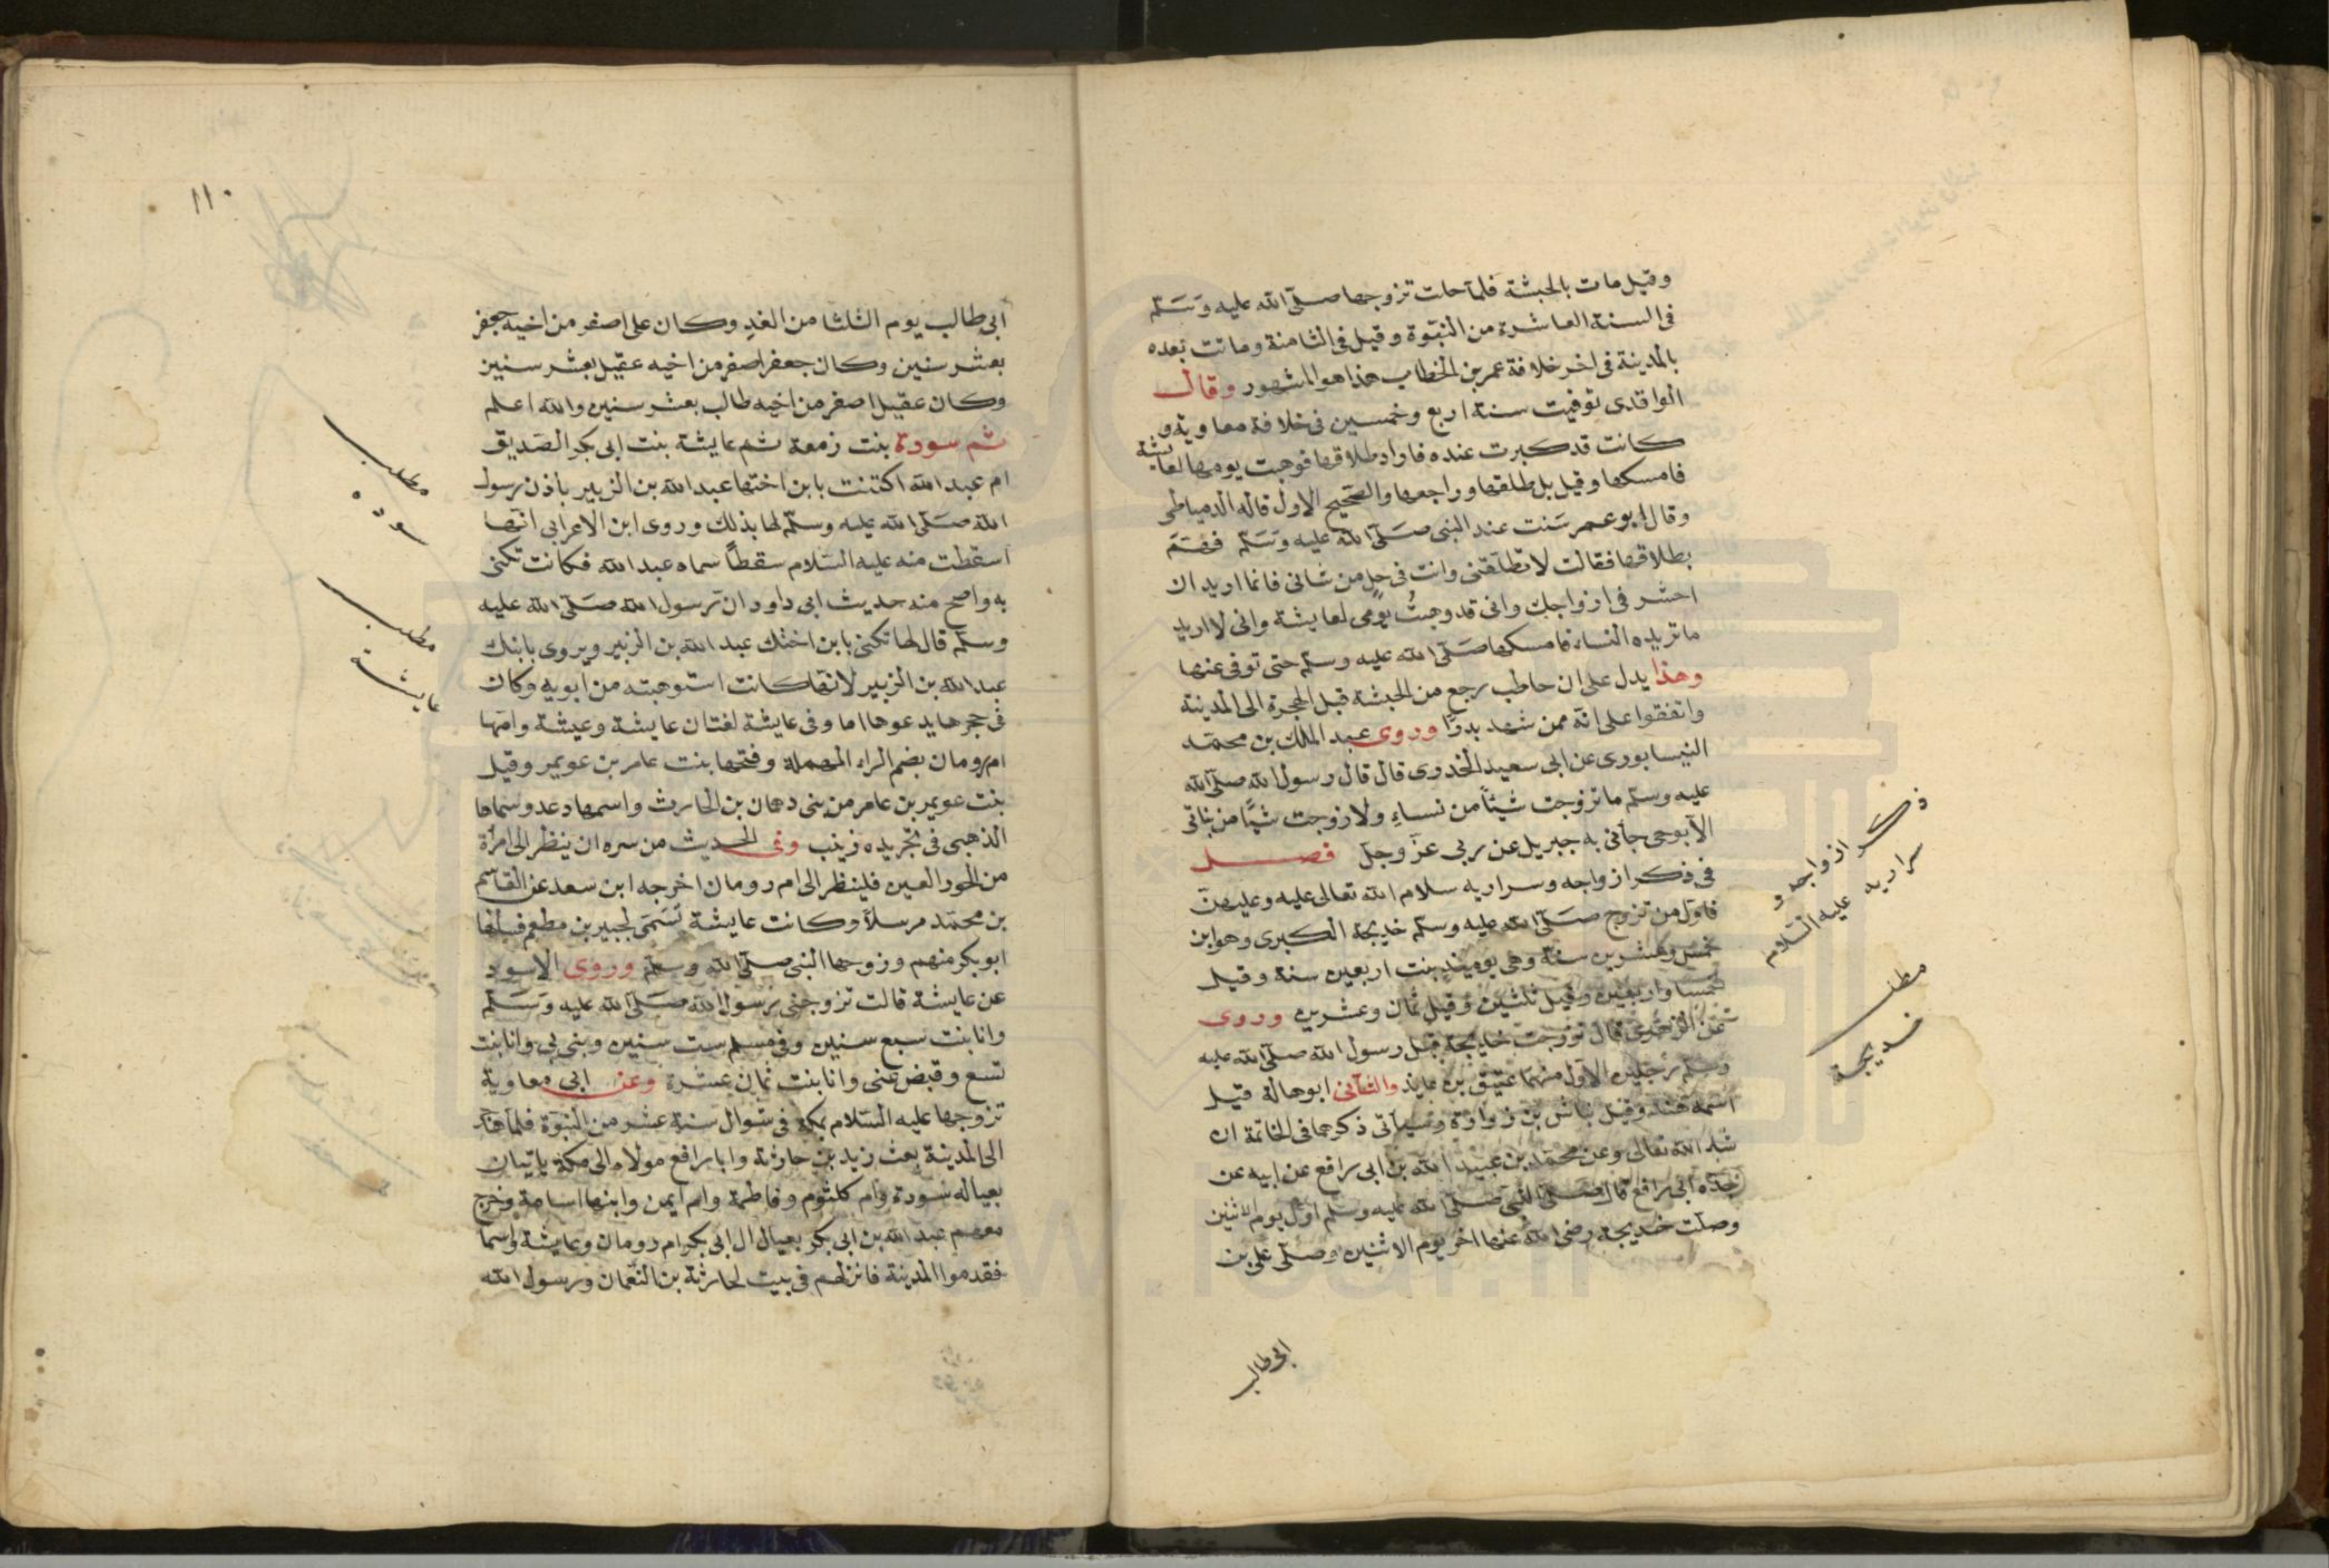 وقيل مات بالحبشة فلما حلت تزوجها صلى الله عليه وسلم
فى السنة العاشرة من النبوة وقيل فى الثامنة وماتت بعده
بالمدينة فى اخر خلافة عمر بن الخطاب هذا هو المشهور وقال
الواقدى توفيت سنة اربع وخمسين فى خلافة معاوية و
كانت قد كبرت عنده فاراد طلاقها فوهبت يومها لعايشة
فامسكها وقيل بل طلقها وراجعها والصحيح الاول قاله الدمياطى
وقال ابو عمر سنت عند النبى صلى الله عليه وسلم فهم
بطلاقها فقالت لا تطلقنى وانت فى حل من شانى فانما اريد ان
احشر فى ازواجك وانى قد وهبت يومى لعايشة وانى لا اريد
ما تريده النساء فامسكها صلى الله عليه وسلم حتى توفى عنها
وهذا يدل على ان حاطب رجع من الحبشة قبل الهجرة الى المدينة
واتفقوا على انه ممن شهد بدرا وروى عبد الملك بن محمد
النيسابورى عن ابى سعيد الخدرى قال قال رسول الله صلى الله
عليه وسلم ما تزوجت شيئا من نساء ولا زوجت شيئا من بناتى
الا بوحى جأنى به جبريل عن ربى عز وجل فصل
فى ذكر ازواجه وسراريه سلام الله تعالى عليه وعليهن
فاول من تزوج صلى الله عليه وسلم خديجة الكبرى وهو ابن
خمس وعشرين سنة وهى يوميذ بنت اربعين سنة وقيل
خمسا واربعين وقيل ثلثين وقيل ثمان وعشرين وروى
عن الزهرى قال تزوجت خديجة قبل رسول الله صلى الله عليه
وسلم رجلين الاول منهما عتيق بن عايذ والثانى ابو هالة قيل
اسمه هند وقيل نباش بن زرارة وسيأتى ذكرهما فى الخاتمة ان
شاء الله تعالى وعن محمد بن عبيد الله بن ابى رافع عن ابيه عن
جده ابى رافع قال صلى النبى صلى الله عليه وسلم اول يوم الاثنين
وصلت خديجة رضى الله عنها اخر يوم الاثنين وصلى على بن
ابى طالب
ذكر ازواجه و
سراريه عليه السلام
مطلب
خديجة
١١٠
ابى طالب يوم الثلثا من الغد وكان على اصغر من اخيه جعفر
بعشر سنين وكان جعفر اصغر من اخيه عقيل بعشر سنين
وكان عقيل اصغر من اخيه طالب بعشر سنين والله اعلم
ثم سورة بنت زمعة ثم عايشة بنت ابى بكر الصديق
ام عبد الله اكتنت بابن اختها عبد الله بن الزبير باذن رسول
الله صلى الله عليه وسلم لها بذلك وروى ابن الاعرابى انها
اسقطت منه عليه السلام سقطا سماه عبد الله فكانت تكنى
به واصح منه حديث ابى داود ان رسول الله صلى الله عليه
وسلم قال لها تكنى بابن اختك عبد الله بن الزبير ويروى بابنك
عبد الله بن الزبير لانها كانت استوهبته من ابويه وكان
فى حجرها يدعوها اما وفى عايشة لغتان عايشة وعيشة وامها
ام رومان بضم الراء المهملة وفتحها بنت عامر بن عويمر وقيل
بنت عويمر بن عامر من بنى دهمان بن الحارث واسمها دعد وسماها
الذهبى فى تجريده زينب وفى الحديث من سره ان ينظر الى امرأة
من الحور العين فلينظر الى ام رومان اخرجه ابن سعد عن القاسم
بن محمد مرسلا وكانت عايشة تسمى لجبير بن مطعم فسلها
ابو بكر منهم وزوجها النبى صلى الله وسلم وروى الاسود
عن عايشة قالت تزوجنى رسول الله صلى الله عليه وسلم
وانا بنت سبع سنين وفى مسلم ست سنين وبنى بى وانا بنت
تسع وقبض عنى وانا بنت ثمان عشرة وعن ابى معاوية
تزوجها عليه السلام بمكة فى شوال سنة عشر من النبوة فلما هاجر
الى المدينة بعث زيد بن حارثة وابا رافع مولاه الى مكة ياتيان
بعياله سورة وام كلثوم وفاطمة وام ايمن وابنها اسامة وخرج
معهم عبد الله بن ابى بكر بعيال ال ابى بكر ام رومان وعايشة واسما
فقدموا المدينة فانزلهم فى بيت لحارثة بن النعمان ورسول الله
مطلب
سوده
مطلب
عايشة